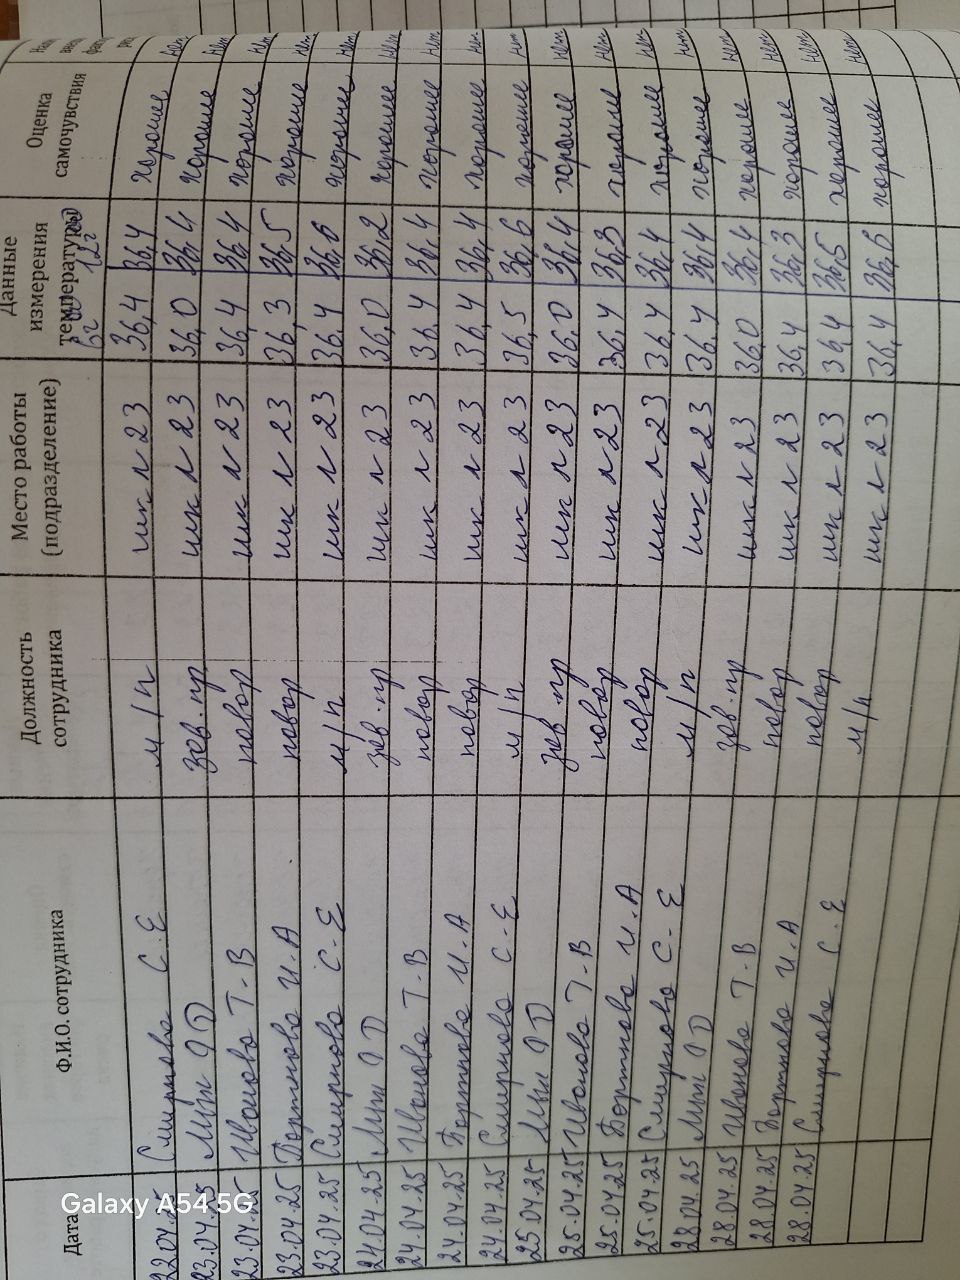 Дата Ф.И.О. сотрудника Должность сотрудника Место работы (подразделение) Данные измерения температуры Оценка самочувствия
22.04.25 Смирнова С.Е м/п шк л 23 36,4 36,4 хорошее нет
23.04.25 зав.пр шк л 23 36,0 36,4 хорошее нет
23.04.25 Иванова Т.В повар шк л 23 36,4 36,4 хорошее нет
23.04.25 Бортнова И.А повар шк л 23 36,3 36,5 хорошее нет
23.04.25 Смирнова С.Е м/п шк л 23 36,4 36,6 хорошее нет
24.04.25 зав.пр шк л 23 36,0 36,2 хорошее нет
24.04.25 Иванова Т.В повар шк л 23 36,4 36,4 хорошее нет
24.04.25 Бортнова И.А повар шк л 23 36,4 36,4 хорошее нет
24.04.25 Смирнова С.Е м/п шк л 23 36,5 36,6 хорошее нет
25.04.25 зав.пр шк л 23 36,0 36,4 хорошее нет
25.04.25 Иванова Т.В повар шк л 23 36,4 36,3 хорошее нет
25.04.25 Бортнова И.А повар шк л 23 36,4 36,4 хорошее нет
25.04.25 Смирнова С.Е м/п шк л 23 36,4 36,4 хорошее нет
28.04.25 зав.пр шк л 23 36,0 36,4 хорошее нет
28.04.25 Иванова Т.В повар шк л 23 36,4 36,3 хорошее нет
28.04.25 Бортнова И.А повар шк л 23 36,4 36,5 хорошее нет
28.04.25 Смирнова С.Е м/п шк л 23 36,4 36,6 хорошее нет
Galaxy A54 5G